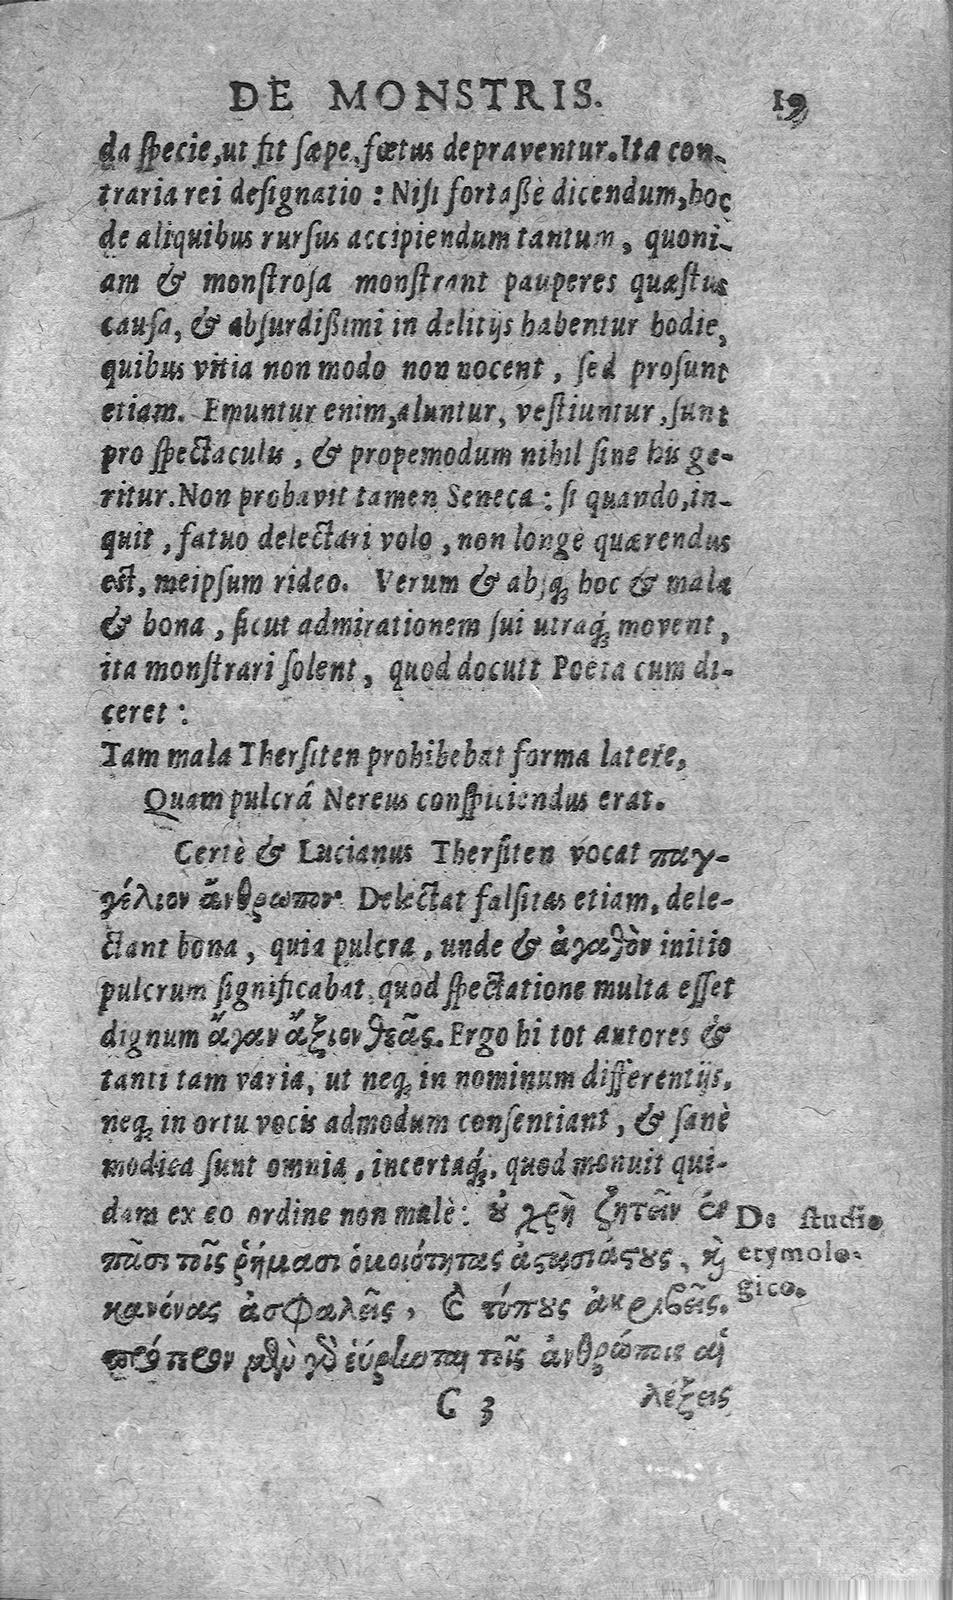 DE MONSTRIS. 19
da ſpecie, ut fit ſæpe, fœtus depraventur. Ita con-
traria rei deſignatio : Niſi fortaßè dicendum, hoc
de aliquibus rurſus accipiendum tantum, quoni-
am & monſtroſa monſtrant pauperes quæſtus
cauſa, & abſurdißimi in delitijs habentur hodie,
quibus vitia non modo non nocent, ſed proſunt
etiam. Emuntur enim, aluntur, veſtiuntur, ſunt
pro ſpectaculis, & propemodum nihil ſine his ge-
ritur. Non probavit tamen Seneca : ſi quando, in-
quit, fatuo delectari volo, non longè quærendus
est, meipſum rideo. Verum & abſq; hoc & mala
& bona, ſicut admirationem ſui utraq́; movent,
ita monſtrari ſolent, quod docuit Poëta cum di-
ceret :
Tam mala Therſiten prohibebat forma latere,
Quam pulcrâ Nereus conſpiciendus erat.
Certè & Lucianus Therſiten vocat παγ-
γέλιον ἄνθρωπον. Delectat falſitas etiam, dele-
ctant bona, quia pulcra, unde & ἀγαθὸν initio
pulcrum ſignificabat, quod ſpectatione multa eſſet
dignum ἄγαν ἄξιον θεᾶς. Ergo hi tot autores &
tanti tam varia, ut neq; in nominum differentijs,
neq; in ortu vocis admodum conſentiant, & ſanè
modica ſunt omnia, incertaq́;, quod monuit qui-
dam ex eo ordine non malè : οὐ χρὴ ζητεῖν ἐν
πᾶσι τοῖς ῥήμασι ὁμοιότητας ἀστασιάστους, καὶ
κανόνας ἀσφαλεῖς, καὶ τύπους ἀκριβεῖς.
πρότερον μὲν γὰρ εὕρηνται τοῖς ἀνθρώποις αἱ
De studio
etymolo-
gico.
C 3 λέξεις